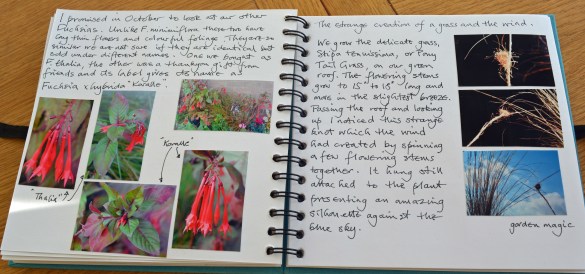 I promised in October to look at our other
Fuchsias. Unlike F. miniflora these two have
long thin flowers and colourful foliage. They are so
similar we are not sure if they are identical but
sold under different names. One we bought as
F. thalia, the other was a thankyou gift from
friends and its label gives its name as
Fuchsia x hybrida "Koralle".
"Thalia"
"Koralle"
The strange creation of a grass and the wind.
We grow the delicate grass,
Stipa tenuissima, or Pony
Tail Grass, on our green
roof. The flowering stems
grow to 15" to 18" long and
move in the slightest breeze.
Passing the roof and looking
up I noticed this strange
knot which the wind
had created by spinning
a few flowering stems
together. It hung still
attached to the plant
presenting an amazing
silhouette against the
blue sky.
garden magic